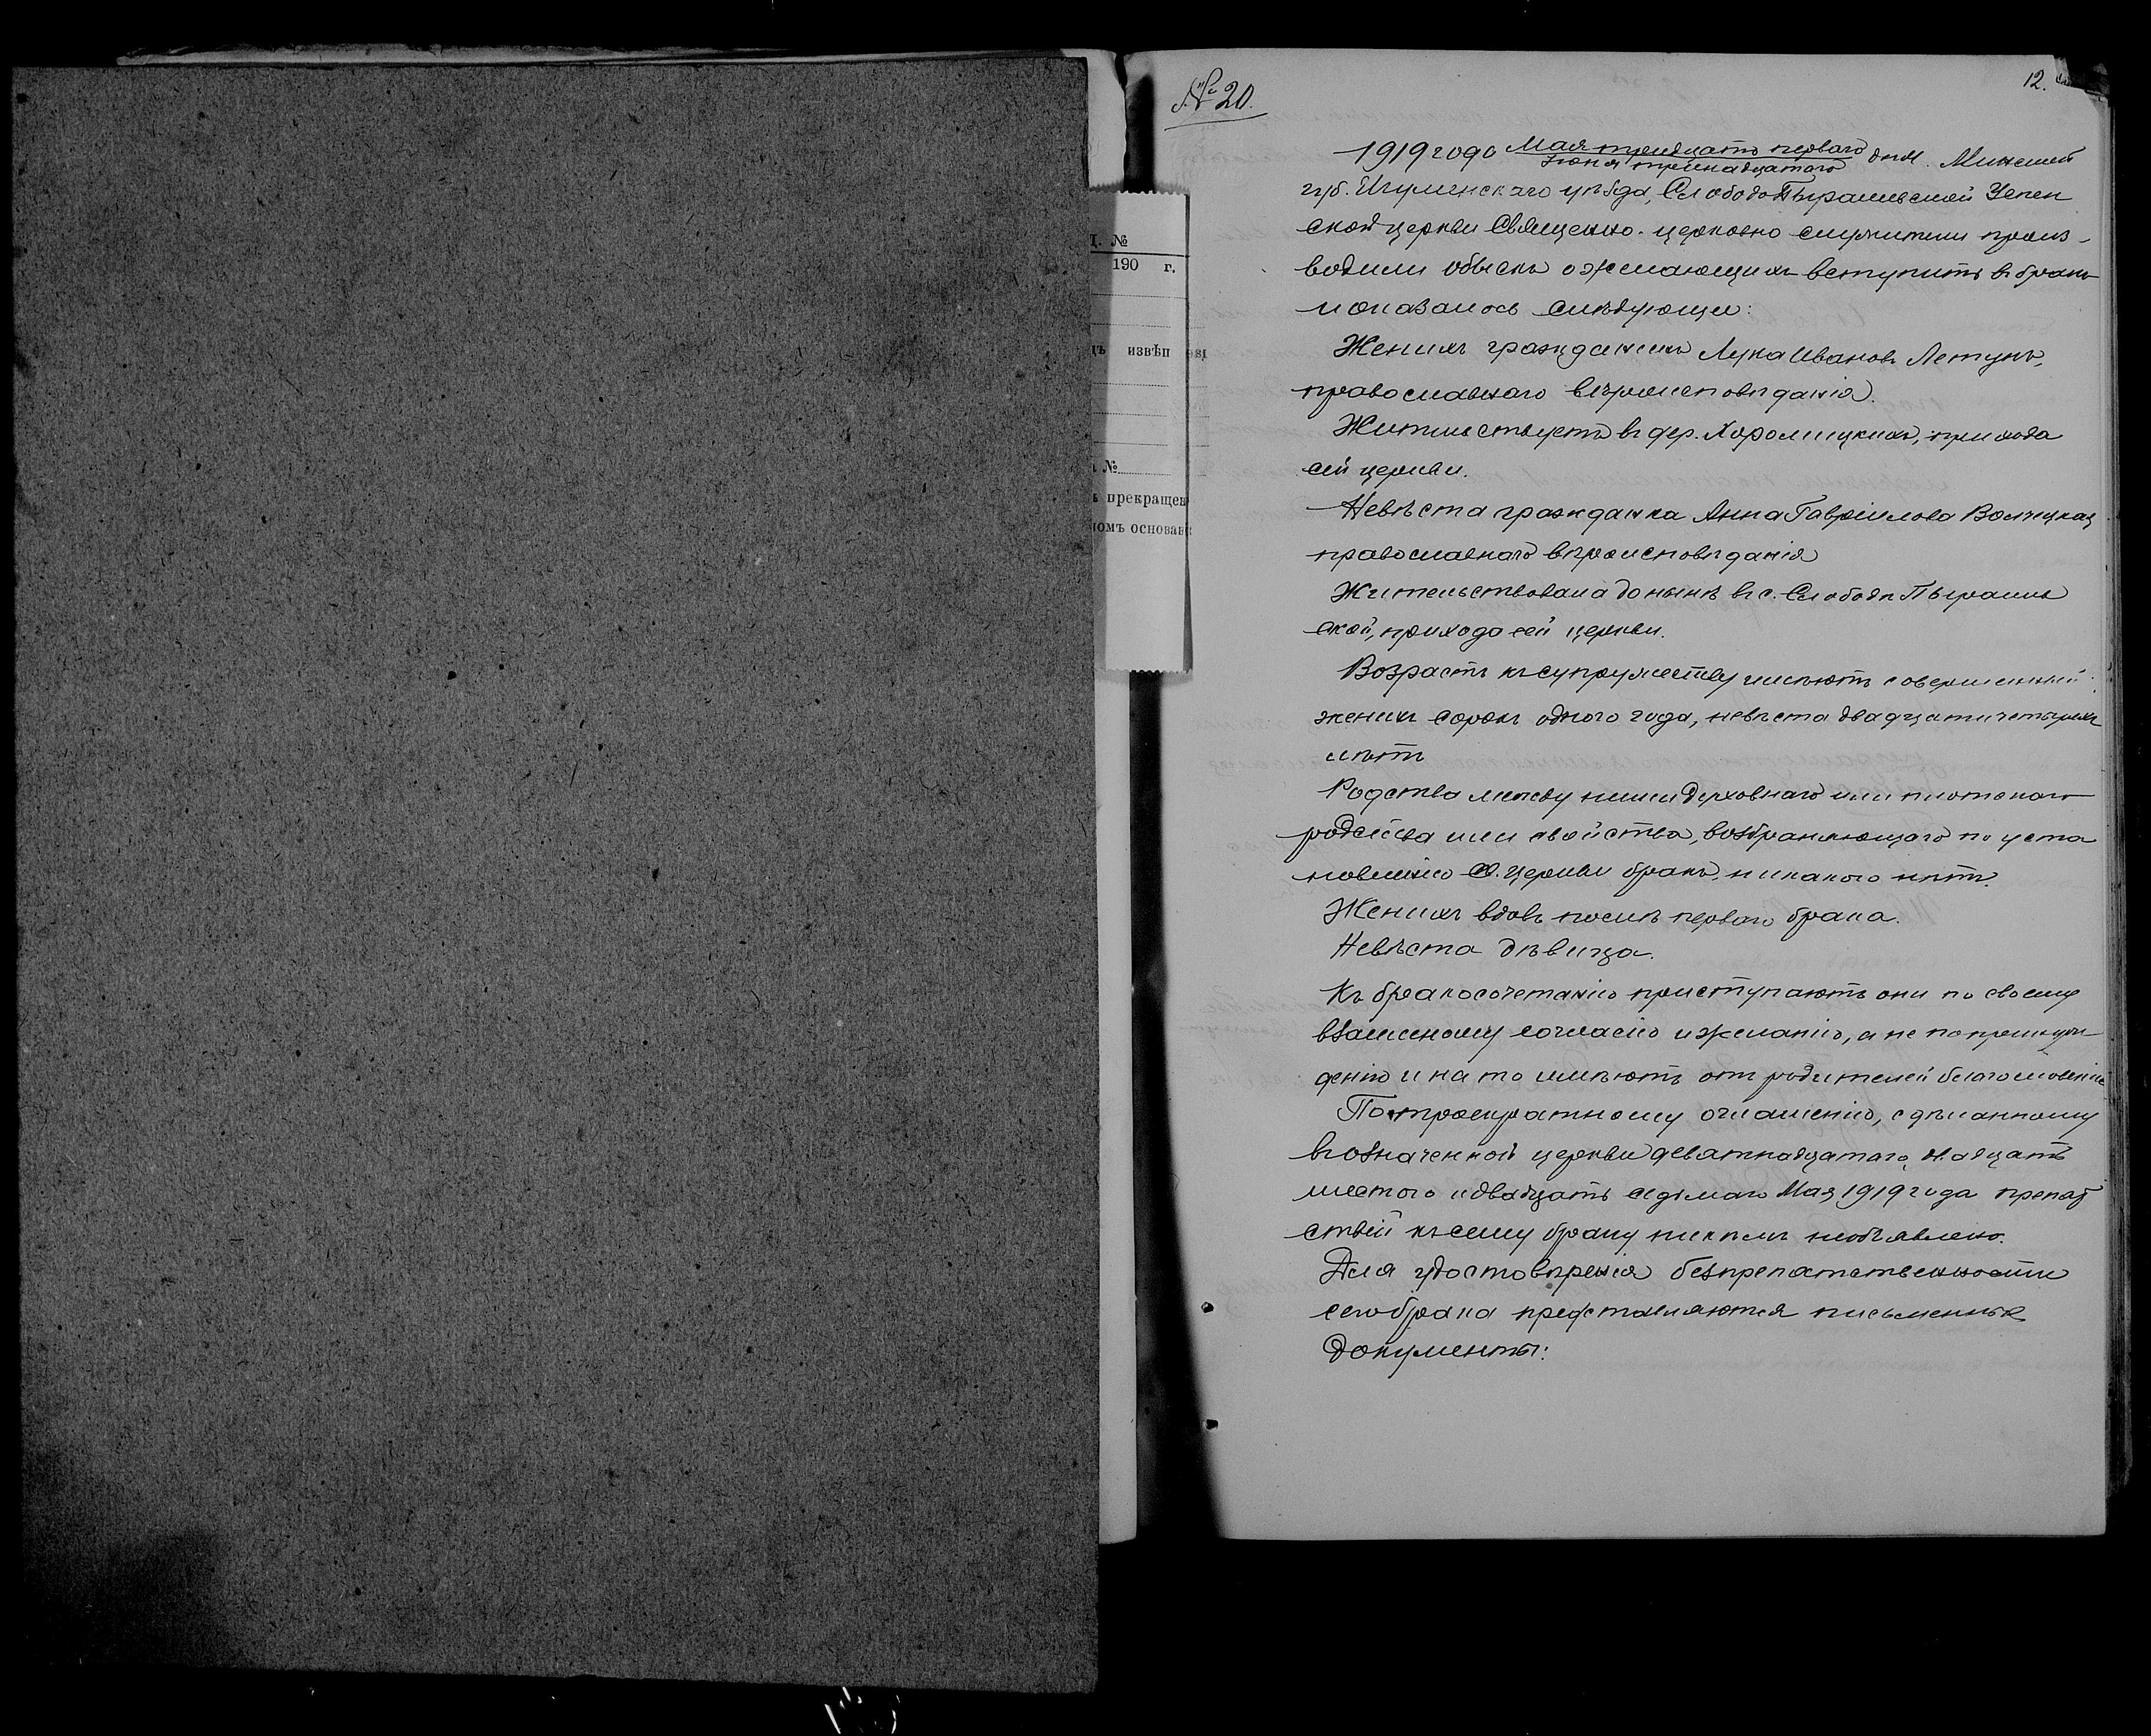 Ц. №
190 г.
извѣп
№
прекращен
номъ основан
№ 20.
12.
1919 года Мая тридцать перваго дня. Минской
Іюня тринадцатаго
губ. Игуменскаго уѣзда, Слободо Пырашевской Успен
ской церкви Священно-церковно служители произ-
водили обыскъ о желающихъ вступить въ бракъ
и оказалось слѣдующее:
Женихъ гражданинъ Лука Ивановъ Летунъ,
православнаго вѣроисповѣданія.
Жительствуетъ въ дер. Хоромицкихъ, прихода
сей церкви.
Невѣста гражданка Анна Гавріилова Волчецкая
православнаго вѣроисповѣданія
Жительствовала до нынѣ въ с. Слободѣ Пырашев
ской, прихода сей церкви.
Возрастъ къ супружеству имѣютъ совершенный:
женихъ сорокъ одного года, невѣста двадцати четырехъ
лѣтъ
Родства между ними духовнаго или плотскаго
родства или свойства, возбраняющаго по уста
новленію св. церкви бракъ, никакого нѣтъ.
Женихъ вдовъ послѣ перваго брака.
Невѣста дѣвица.
Къ бракосочетанію приступаютъ они по своему
взаимному согласію и желанію, а не по принуж-
денію и на то имѣютъ отъ родителей благословеніе
По троекратному оглашенію, сдѣланному
въ означенной церкви девятнадцатаго, двадцать
шестого и двадцать седьмаго Мая 1919 года препят
ствій къ сему браку никѣмъ необъявлено.
Для удостовѣренія безпрепятственности
сего брака представляются письменные
документы: